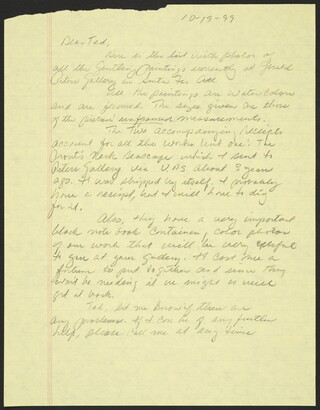 10-19-99
Dear Ted,
Here is the list with photos of
all the Gentling Paintings currently at Gerald
Peters Gallery in Santa Fe.
All the paintings are watercolors
and are framed. The sizes given are those
of the pictures unframed measurements.
The two accompanying receipts
account for all the works but one: The
Prout's Neck Seascape which I sent to
Peters Gallery via UPS about 3 years
ago. It was shipped by itself, I probably
have a receipt, but I will have to dig
for it.
Also, they have a very important
black note book containing color photos
of our work that will be very useful
to you at your gallery. It cost me a
fortune to put together and since they
won't be needing it we might as well
get it back.
Ted, let me know if there are
any problems. If I can be of any further
help, please call me at any time